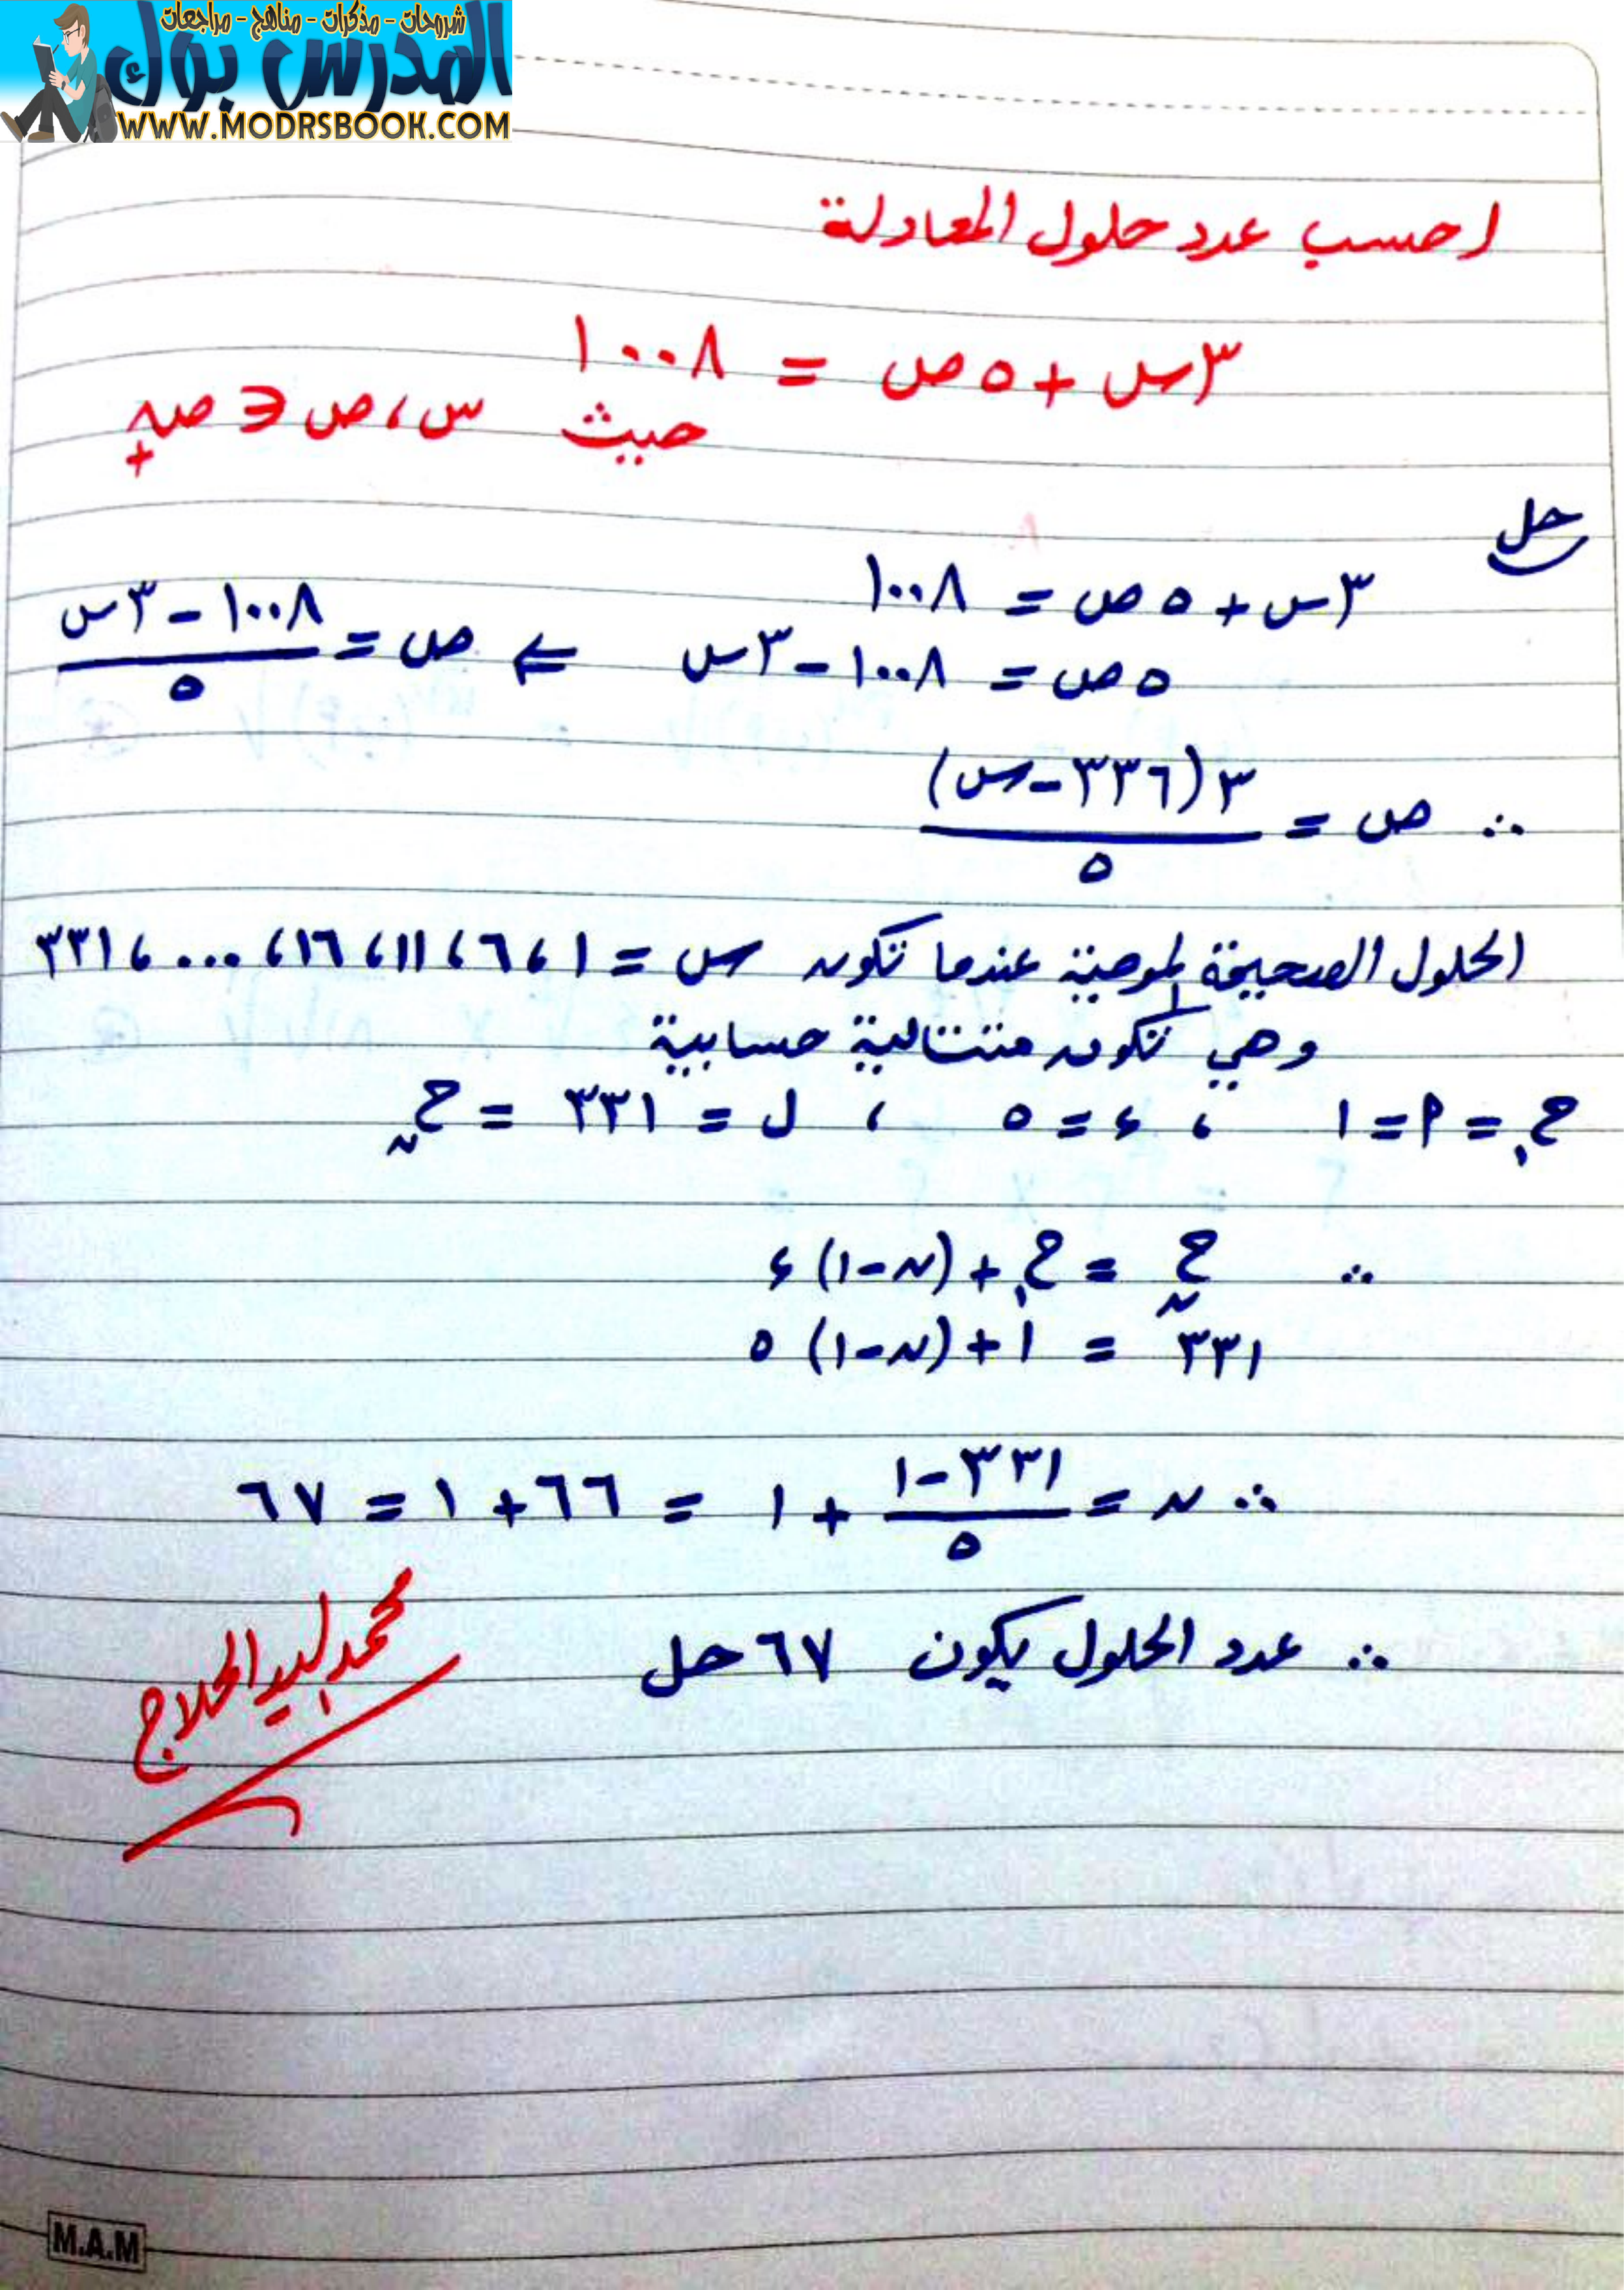 شروحات - مذكرات - مناهج - مراجعات
المدرس بوك
WWW.MODRSBOOK.COM
احسب عدد حلول المعادلة
٣س + ٥ص = ١٠٠٨
حيث س ، ص ∈ صـ+
حل
٣س + ٥ص = ١٠٠٨
٥ص = ١٠٠٨ - ٣س ⇐ ص = (١٠٠٨ - ٣س)/٥
∴ ص = ٣(٣٣٦ - س)/٥
الحلول الصحيحة الموجبة عندما تكون س = ١ ، ٦ ، ١١ ، ١٦ ، ... ، ٣٣١
وهي تكون متتالية حسابية
ح١ = أ = ١ ، ء = ٥ ، ل = ٣٣١ = حن
∴ حن = ح١ + (ن - ١) ء
٣٣١ = ١ + (ن - ١) ٥
∴ ن = (٣٣١ - ١)/٥ + ١ = ٦٦ + ١ = ٦٧
∴ عدد الحلول يكون ٦٧ حل
محمد السيد الحلاج
M.A.M